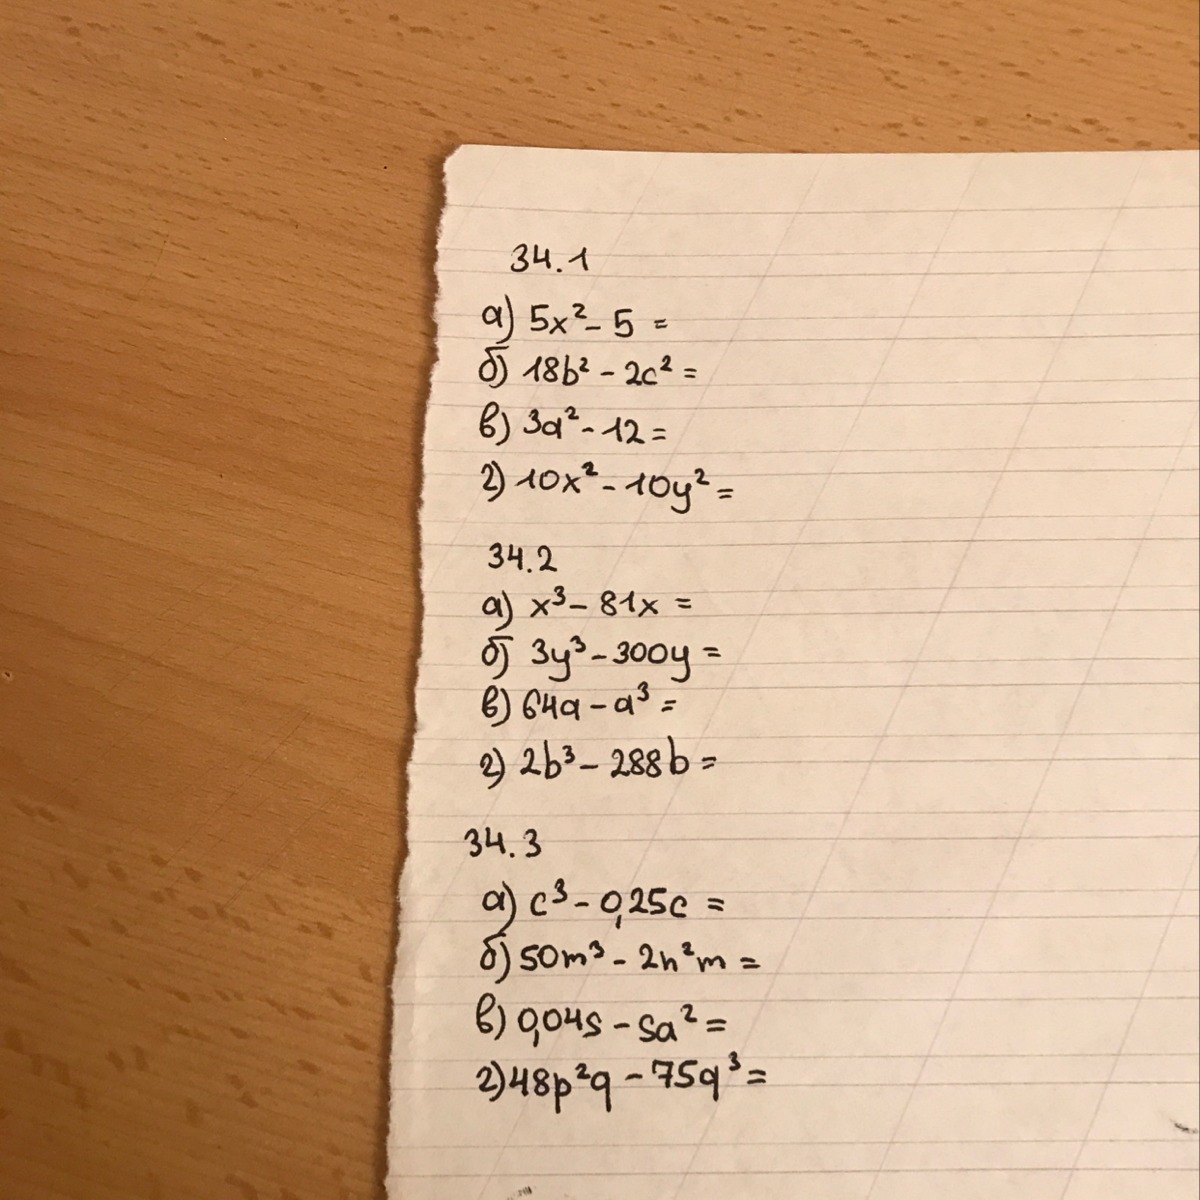 34.1
а) 5x² - 5 =
б) 18b² - 2c² =
в) 3a² - 12 =
г) 10x² - 10y² =
34.2
а) x³ - 81x =
б) 3y³ - 300y =
в) 64a - a³ =
г) 2b³ - 288b =
34.3
а) c³ - 0,25c =
б) 50m³ - 2n²m =
в) 0,04s - sa² =
г) 48p²q - 75q³ =